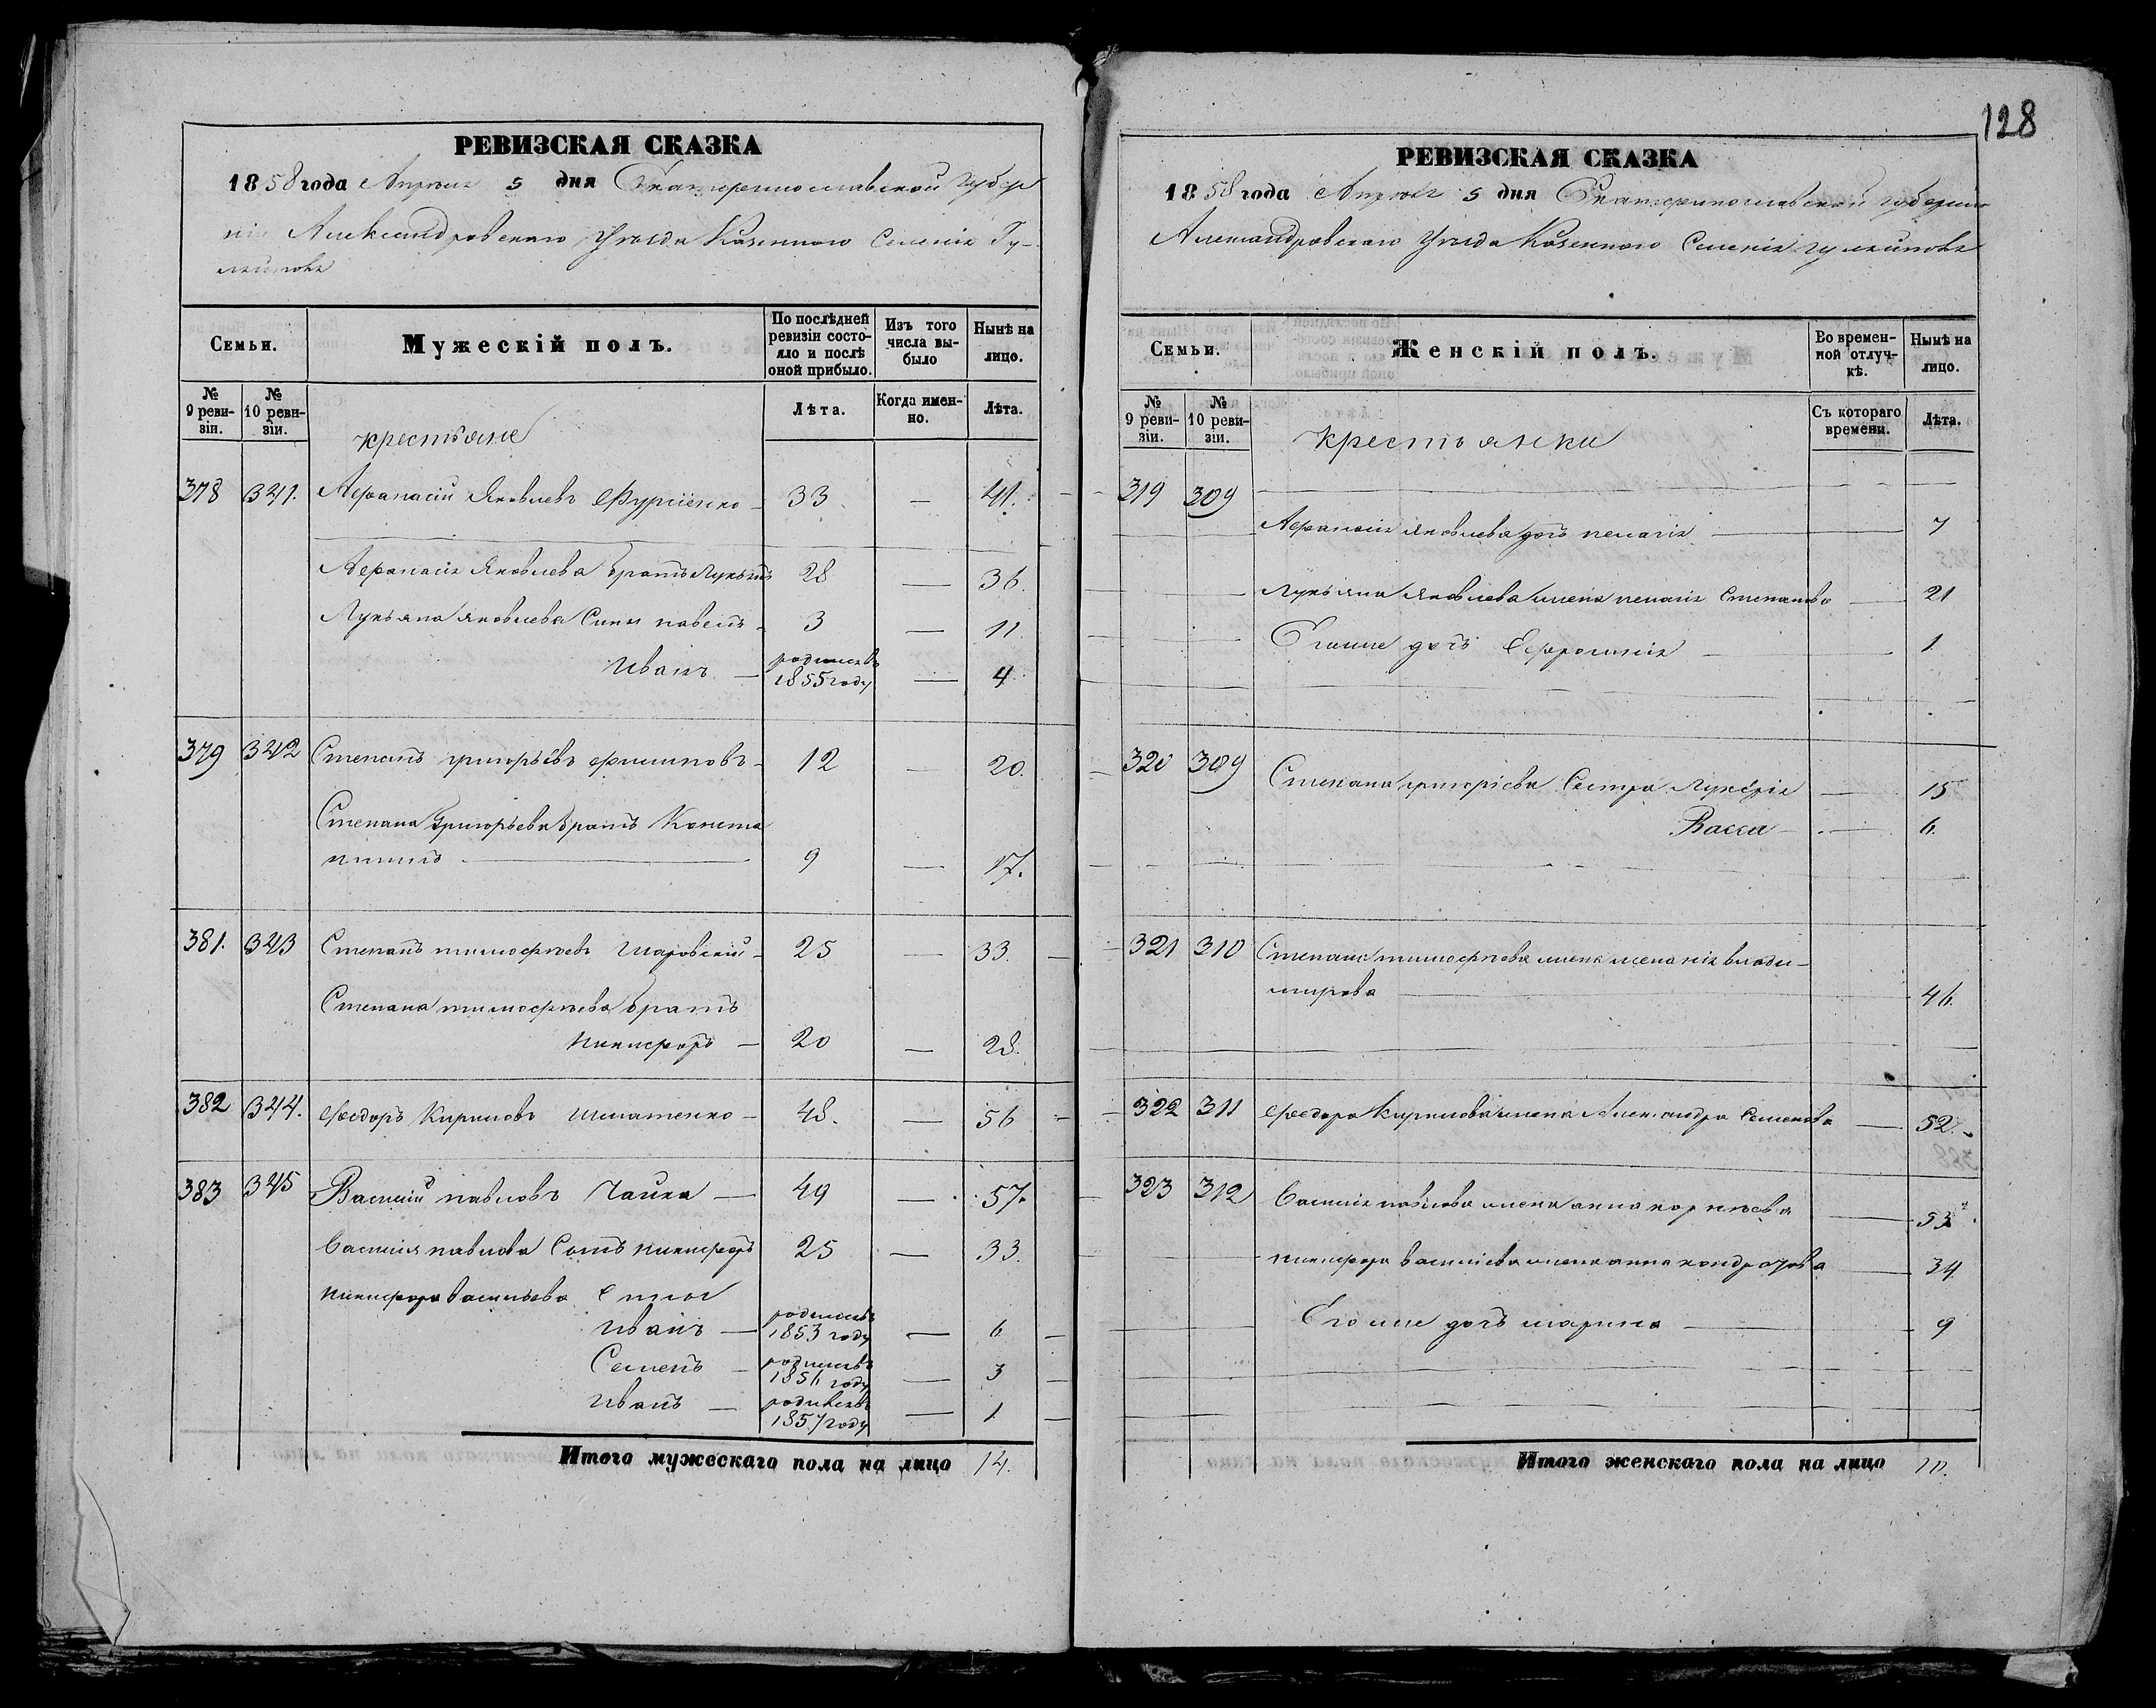 128
РЕВИЗСКАЯ СКАЗКА
1858 года Апреля 5 дня Екатеринославской Губер
ніи Александровскаго Уѣзда Казеннаго Селенія Гу-
ляйполя
Семьи.
Мужескій полъ.
По послѣдней ревизіи состояло и послѣ оной прибыло.
Изъ того числа выбыло
Нынѣ на лицо.
№ 9 ревизіи.
№ 10 ревизіи.
Лѣта.
Когда именно.
Лѣта.
крестьяне
378 341. Афанасій Яковлевъ — 33 — 41.
Афанасія Яковлева братъ Лукьянъ 28 — 36.
Лукьяна Яковлева Сыны павелъ — 3 — 11.
Иванъ — родился въ 1855 году — 4
379 342 Степанъ григорьевъ филиповъ — 12 — 20.
Степана Григорьева братъ Конста
нтинъ — 9 — 17.
381. 343 Степанъ тимофѣевъ Шаровскій — 25 — 33.
Степана тимофѣева братъ
никифоръ — 20 — 28.
382 344. федоръ Кириловъ — 48. — 56
383 345 Василій павловъ Чайка — 49 — 57.
Василія павлова Сынъ никифоръ 25 — 33.
никифора васильева Сыны
Иванъ — родился въ 1853 году — 6
Семенъ — родился въ 1856 году — 3
Иванъ — родился въ 1857 году — 1
Итого мужескаго пола на лицо 14.
РЕВИЗСКАЯ СКАЗКА
1858 года Апреля 5 дня Екатеринославской губерніи
Александровскаго Уѣзда Казеннаго Селенія гуляйполя
Семьи.
Женскій полъ.
Во временной отлучкѣ.
Нынѣ на лицо.
№ 9 ревизіи.
№ 10 ревизіи.
Съ котораго времени.
Лѣта.
крестьянки
319 309
Афанасія яковлева дочь пелагія — 7
Лукьяна яковлева жена пелагія Степанова — 21
Его же дочь Ефросинія — 1
320 309 Степана григоріева Сестра Лукерія — 15
Васса — 6.
321 310 Степана тимофѣева жена влади-
мирова — 46.
322 311 федора Кирилова жена Александра Семенова — 52.
323 312 Василія павлова жена анна корнѣева — 53
никифора василіева жена анна кондратова — 34
Его же дочь марина — 9
Итого женскаго пола на лицо 10.